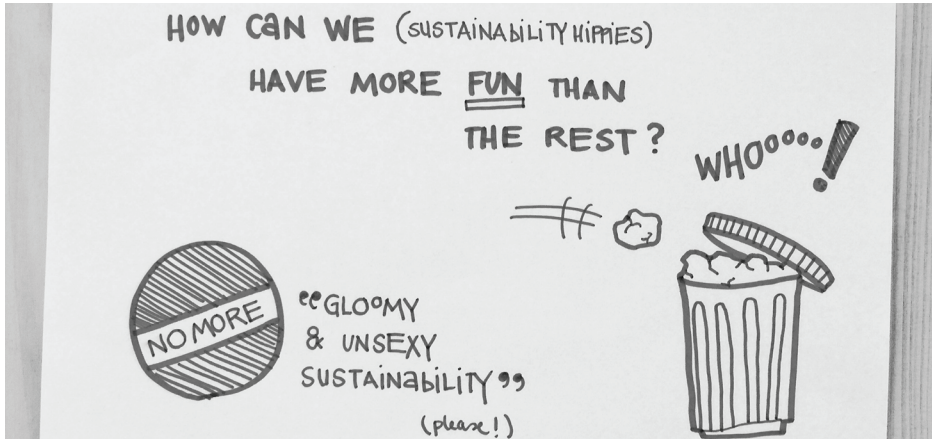 HOW CAN WE (SUSTAINABILITY HIPPIES)
HAVE MORE FUN THAN
THE REST?
WHOOOOOO!
NO MORE
"GLOOMY
& UNSEXY
SUSTAINABILITY"
(please!)